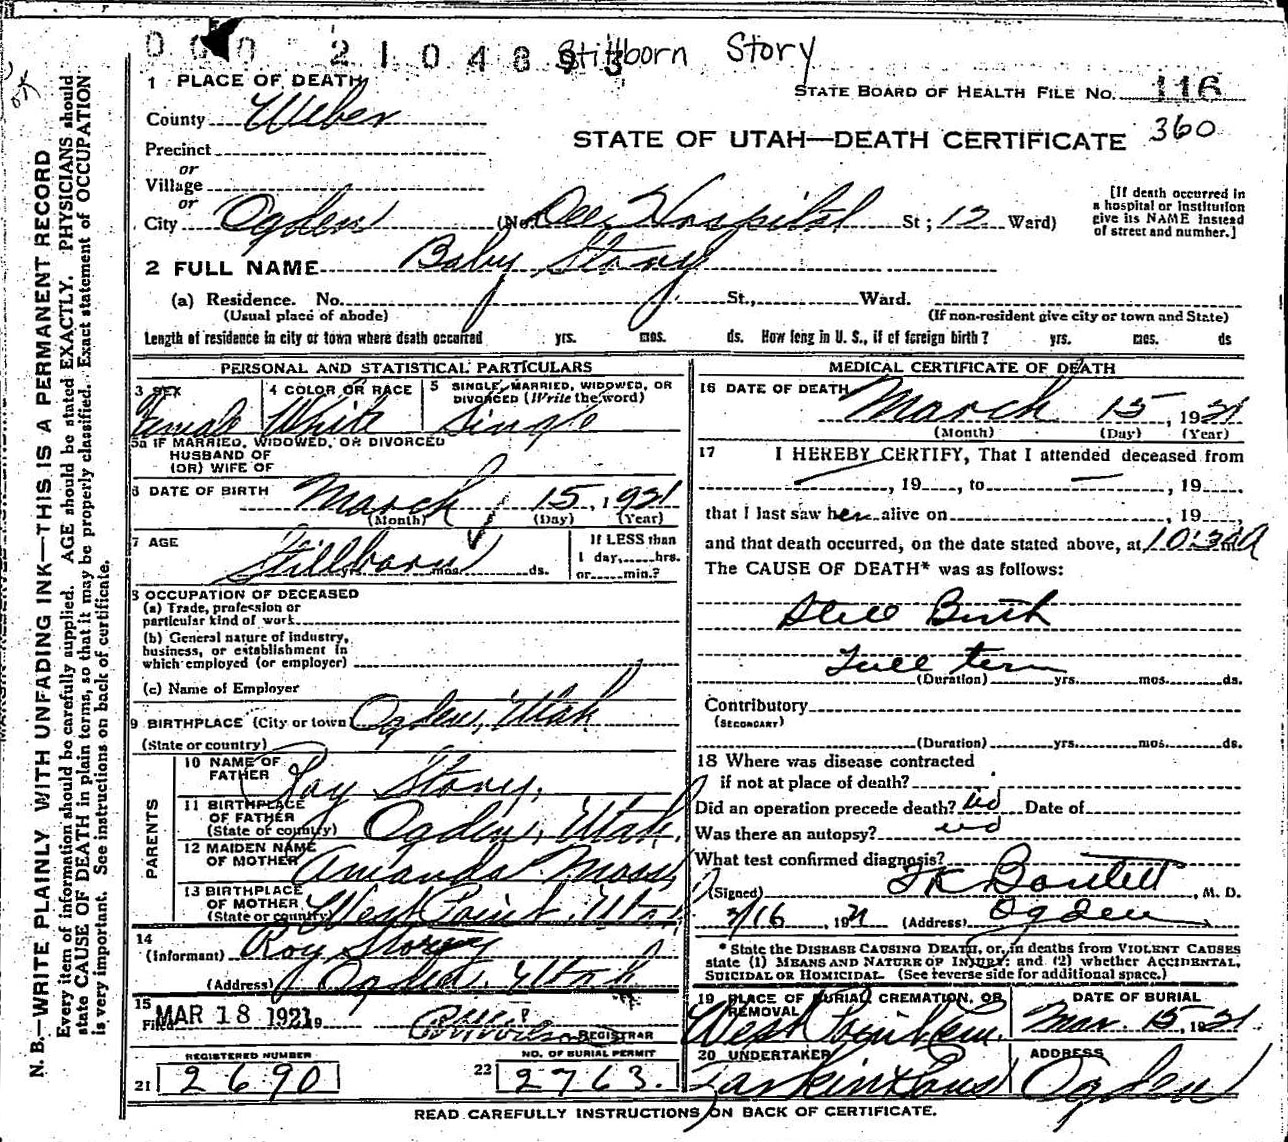 Stillborn Story
1 PLACE OF DEATH
STATE BOARD OF HEALTH FILE NO. 116
County Weber
STATE OF UTAH—DEATH CERTIFICATE 360
Precinct
or
Village
or
City Ogden (No. Dee Hospital St; 12 Ward)
[If death occurred in a hospital or institution give its NAME instead of street and number.]
2 FULL NAME Baby Story
(a) Residence. No. St., Ward.
(Usual place of abode) (If non-resident give city or town and State)
Length of residence in city or town where death occurred yrs. mos. ds. How long in U. S., if of foreign birth? yrs. mos. ds
PERSONAL AND STATISTICAL PARTICULARS
3 SEX Female
4 COLOR OR RACE White
5 SINGLE, MARRIED, WIDOWED, OR DIVORCED (Write the word) Single
5a IF MARRIED, WIDOWED, OR DIVORCED
HUSBAND OF
(OR) WIFE OF
6 DATE OF BIRTH March 15, 1921
(Month) (Day) (Year)
7 AGE Stillborn
yrs. mos. ds.
If LESS than
1 day, hrs.
or min.?
8 OCCUPATION OF DECEASED
(a) Trade, profession or
particular kind of work
(b) General nature of industry,
business, or establishment in
which employed (or employer)
(c) Name of Employer
9 BIRTHPLACE (City or town) Ogden, Utah
(State or country)
PARENTS
10 NAME OF FATHER Roy Story,
11 BIRTHPLACE OF FATHER (State or country) Ogden, Utah.
12 MAIDEN NAME OF MOTHER Amanda Moss
13 BIRTHPLACE OF MOTHER (State or country) West Point, Utah
14
(Informant) Roy Story
(Address) Ogden, Utah
15
Filed MAR 18 1921 19
REGISTRAR
REGISTERED NUMBER
21 2690
NO. OF BURIAL PERMIT
22 2763.
MEDICAL CERTIFICATE OF DEATH
16 DATE OF DEATH March 15, 1921
(Month) (Day) (Year)
17 I HEREBY CERTIFY, That I attended deceased from
, 19 , to , 19
that I last saw her alive on , 19
and that death occurred, on the date stated above, at 10:30 A m.
The CAUSE OF DEATH* was as follows:
Still Birth
Full term
(Duration) yrs. mos. ds.
Contributory
(SECONDARY)
(Duration) yrs. mos. ds.
18 Where was disease contracted
if not at place of death?
Did an operation precede death? no Date of
Was there an autopsy? no
What test confirmed diagnosis?
(Signed) Bartlett, M. D.
3/16, 1921 (Address) Ogden
* State the DISEASE CAUSING DEATH, or, in deaths from VIOLENT CAUSES
state (1) MEANS AND NATURE OF INJURY; and (2) whether ACCIDENTAL,
SUICIDAL OR HOMICIDAL. (See reverse side for additional space.)
19 PLACE OF BURIAL, CREMATION, OR REMOVAL West Point Cem.
DATE OF BURIAL Mar. 15, 1921
20 UNDERTAKER Larkin & Sons
ADDRESS Ogden
READ CAREFULLY INSTRUCTIONS ON BACK OF CERTIFICATE.
N. B.—WRITE PLAINLY WITH UNFADING INK—THIS IS A PERMANENT RECORD
Every item of information should be carefully supplied. AGE should be stated EXACTLY. PHYSICIANS should
state CAUSE OF DEATH in plain terms, so that it may be properly classified. Exact statement of OCCUPATION
is very important. See instructions on back of certificate.